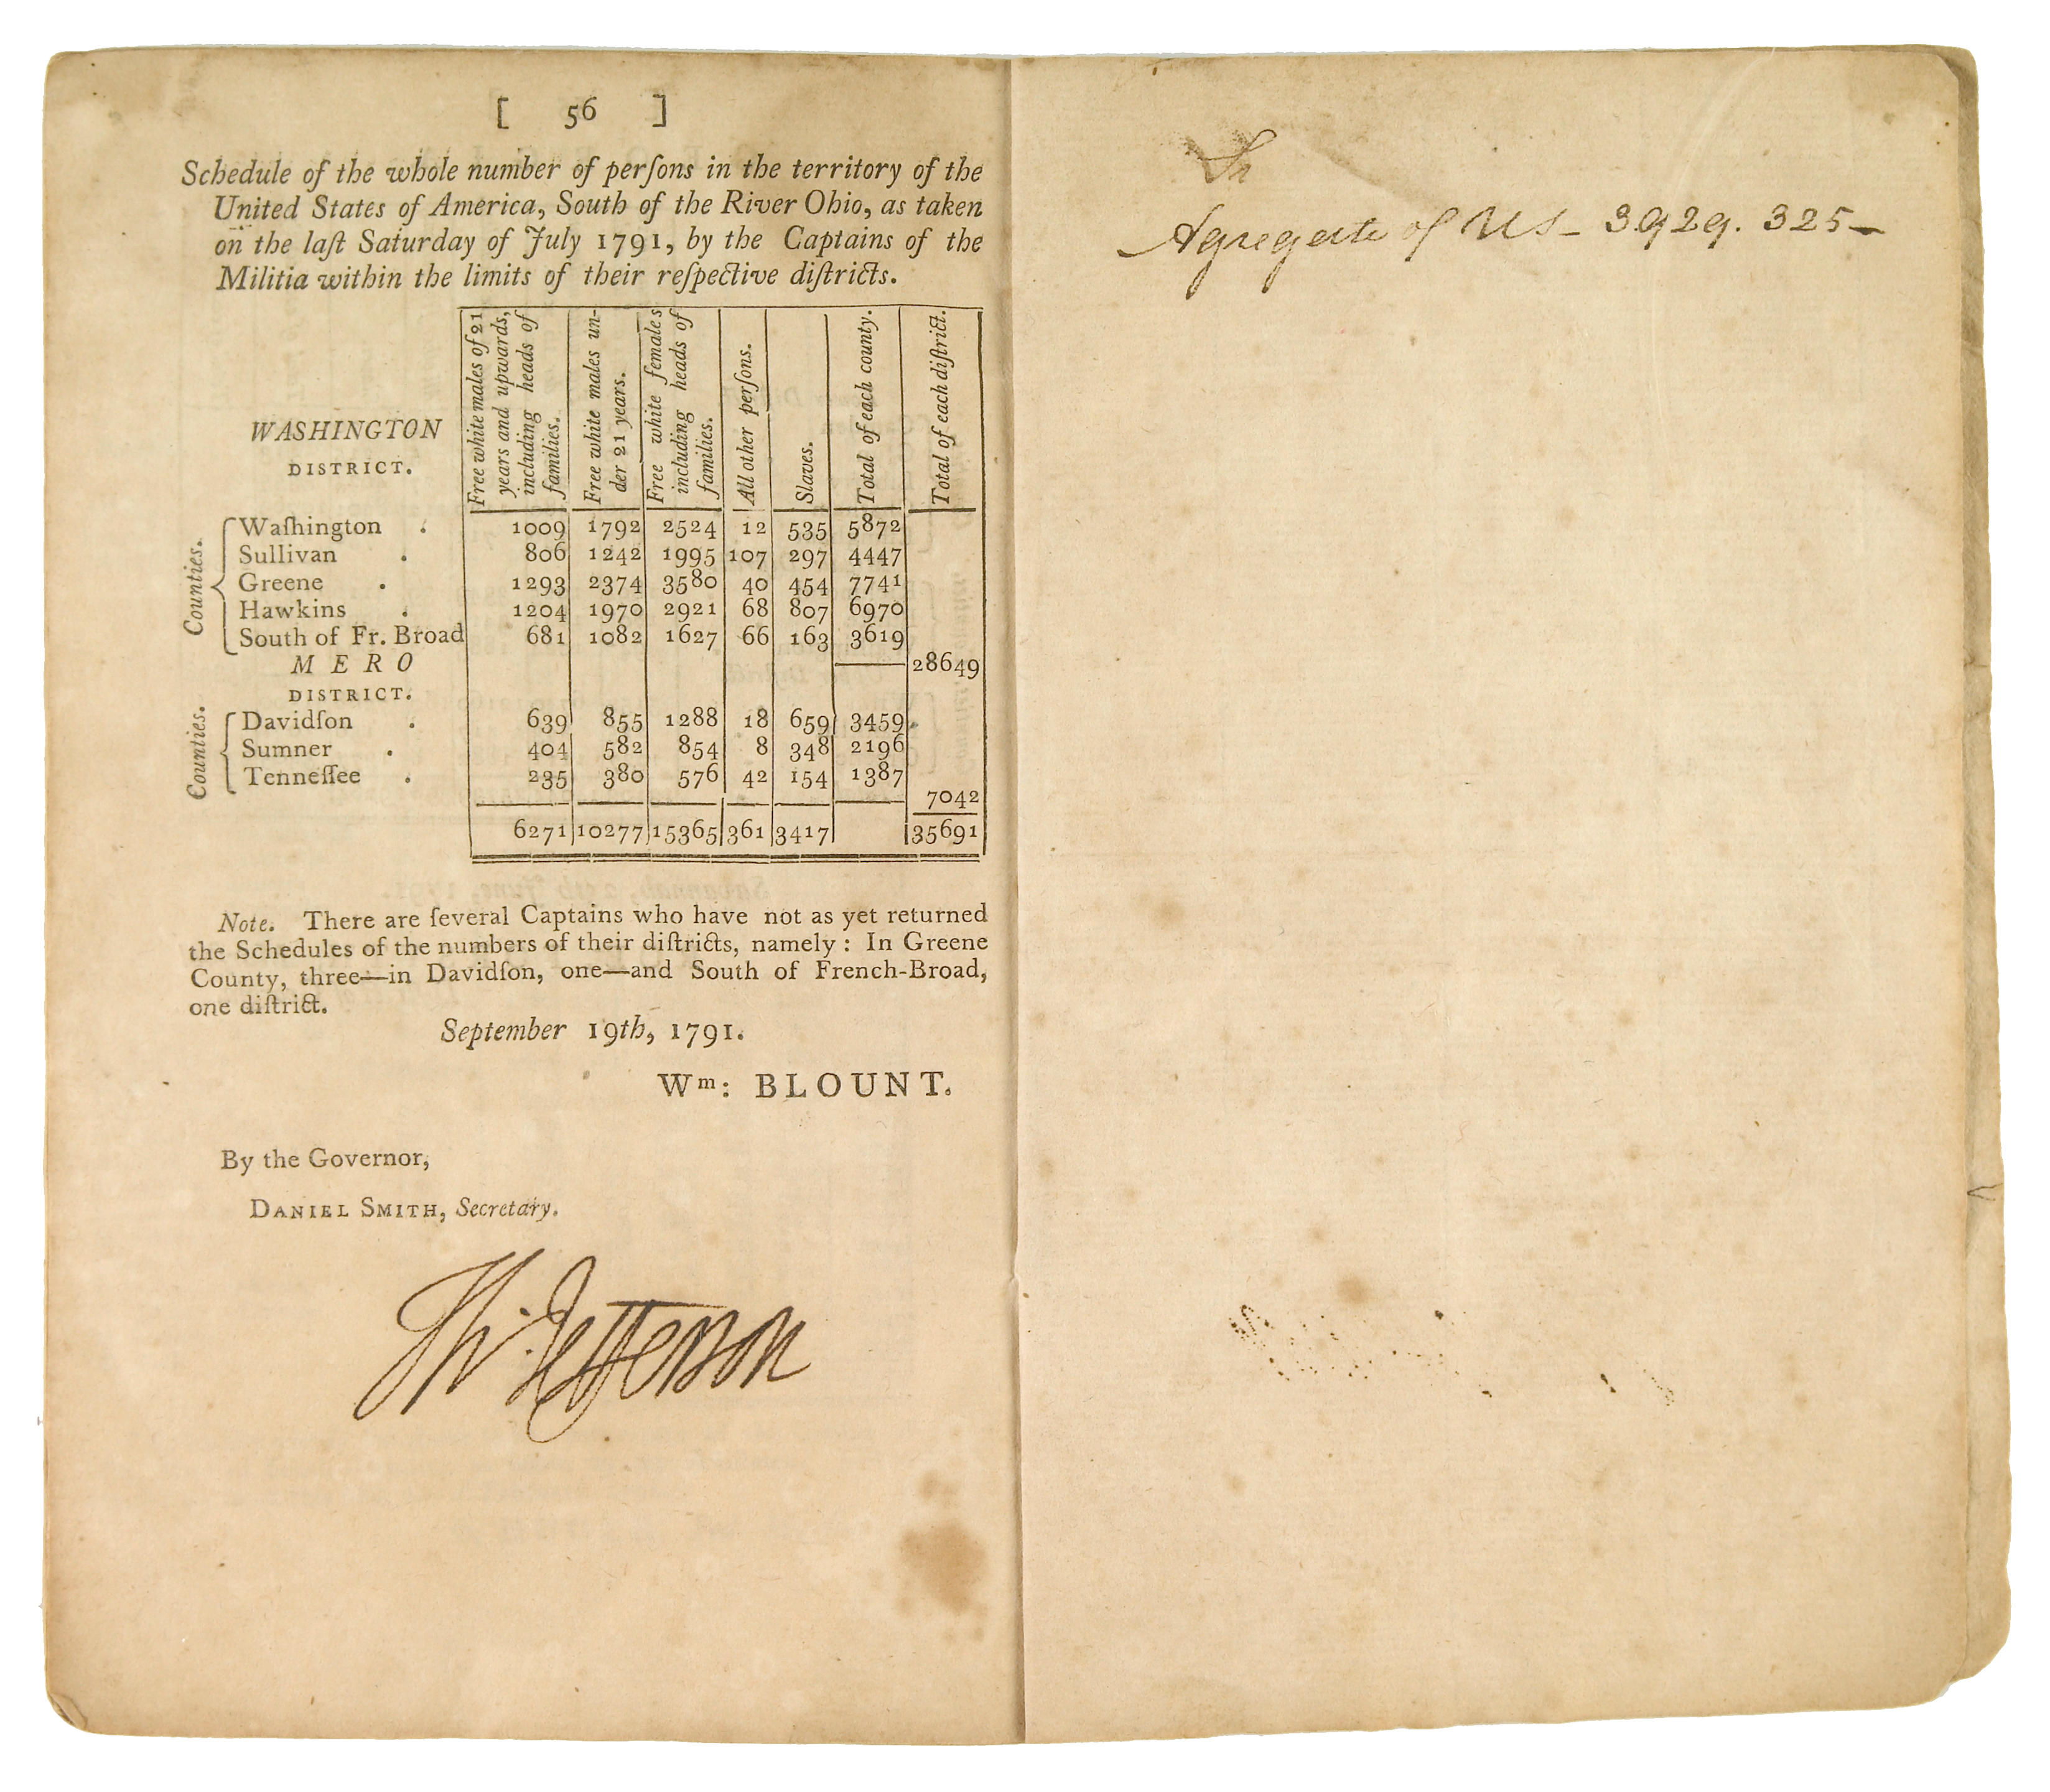 [ 56 ]
Schedule of the whole number of perſons in the territory of the
United States of America, South of the River Ohio, as taken
on the laſt Saturday of July 1791, by the Captains of the
Militia within the limits of their reſpective diſtricts.
WASHINGTON
DISTRICT.
Free white males of 21
years and upwards,
including heads of
families.
Free white males un-
der 21 years.
Free white females
including heads of
families.
All other perſons.
Slaves.
Total of each county.
Total of each diſtrict.
Counties.
Waſhington . 1009 1792 2524 12 535 5872
Sullivan . 806 1242 1995 107 297 4447
Greene . 1293 2374 3580 40 454 7741
Hawkins . 1204 1970 2921 68 807 6970
South of Fr. Broad 681 1082 1627 66 163 3619
MERO 28649
DISTRICT.
Counties.
Davidſon . 639 855 1288 18 659 3459
Sumner . 404 582 854 8 348 2196
Tenneſſee . 235 380 576 42 154 1387
7042
6271 10277 15365 361 3417 35691
Note. There are ſeveral Captains who have not as yet returned
the Schedules of the numbers of their diſtricts, namely : In Greene
County, three—in Davidſon, one—and South of French-Broad,
one diſtrict.
September 19th, 1791.
Wm: BLOUNT.
By the Governor,
DANIEL SMITH, Secretary.
Th: Jefferson
Agregate of US - 3929. 325 -